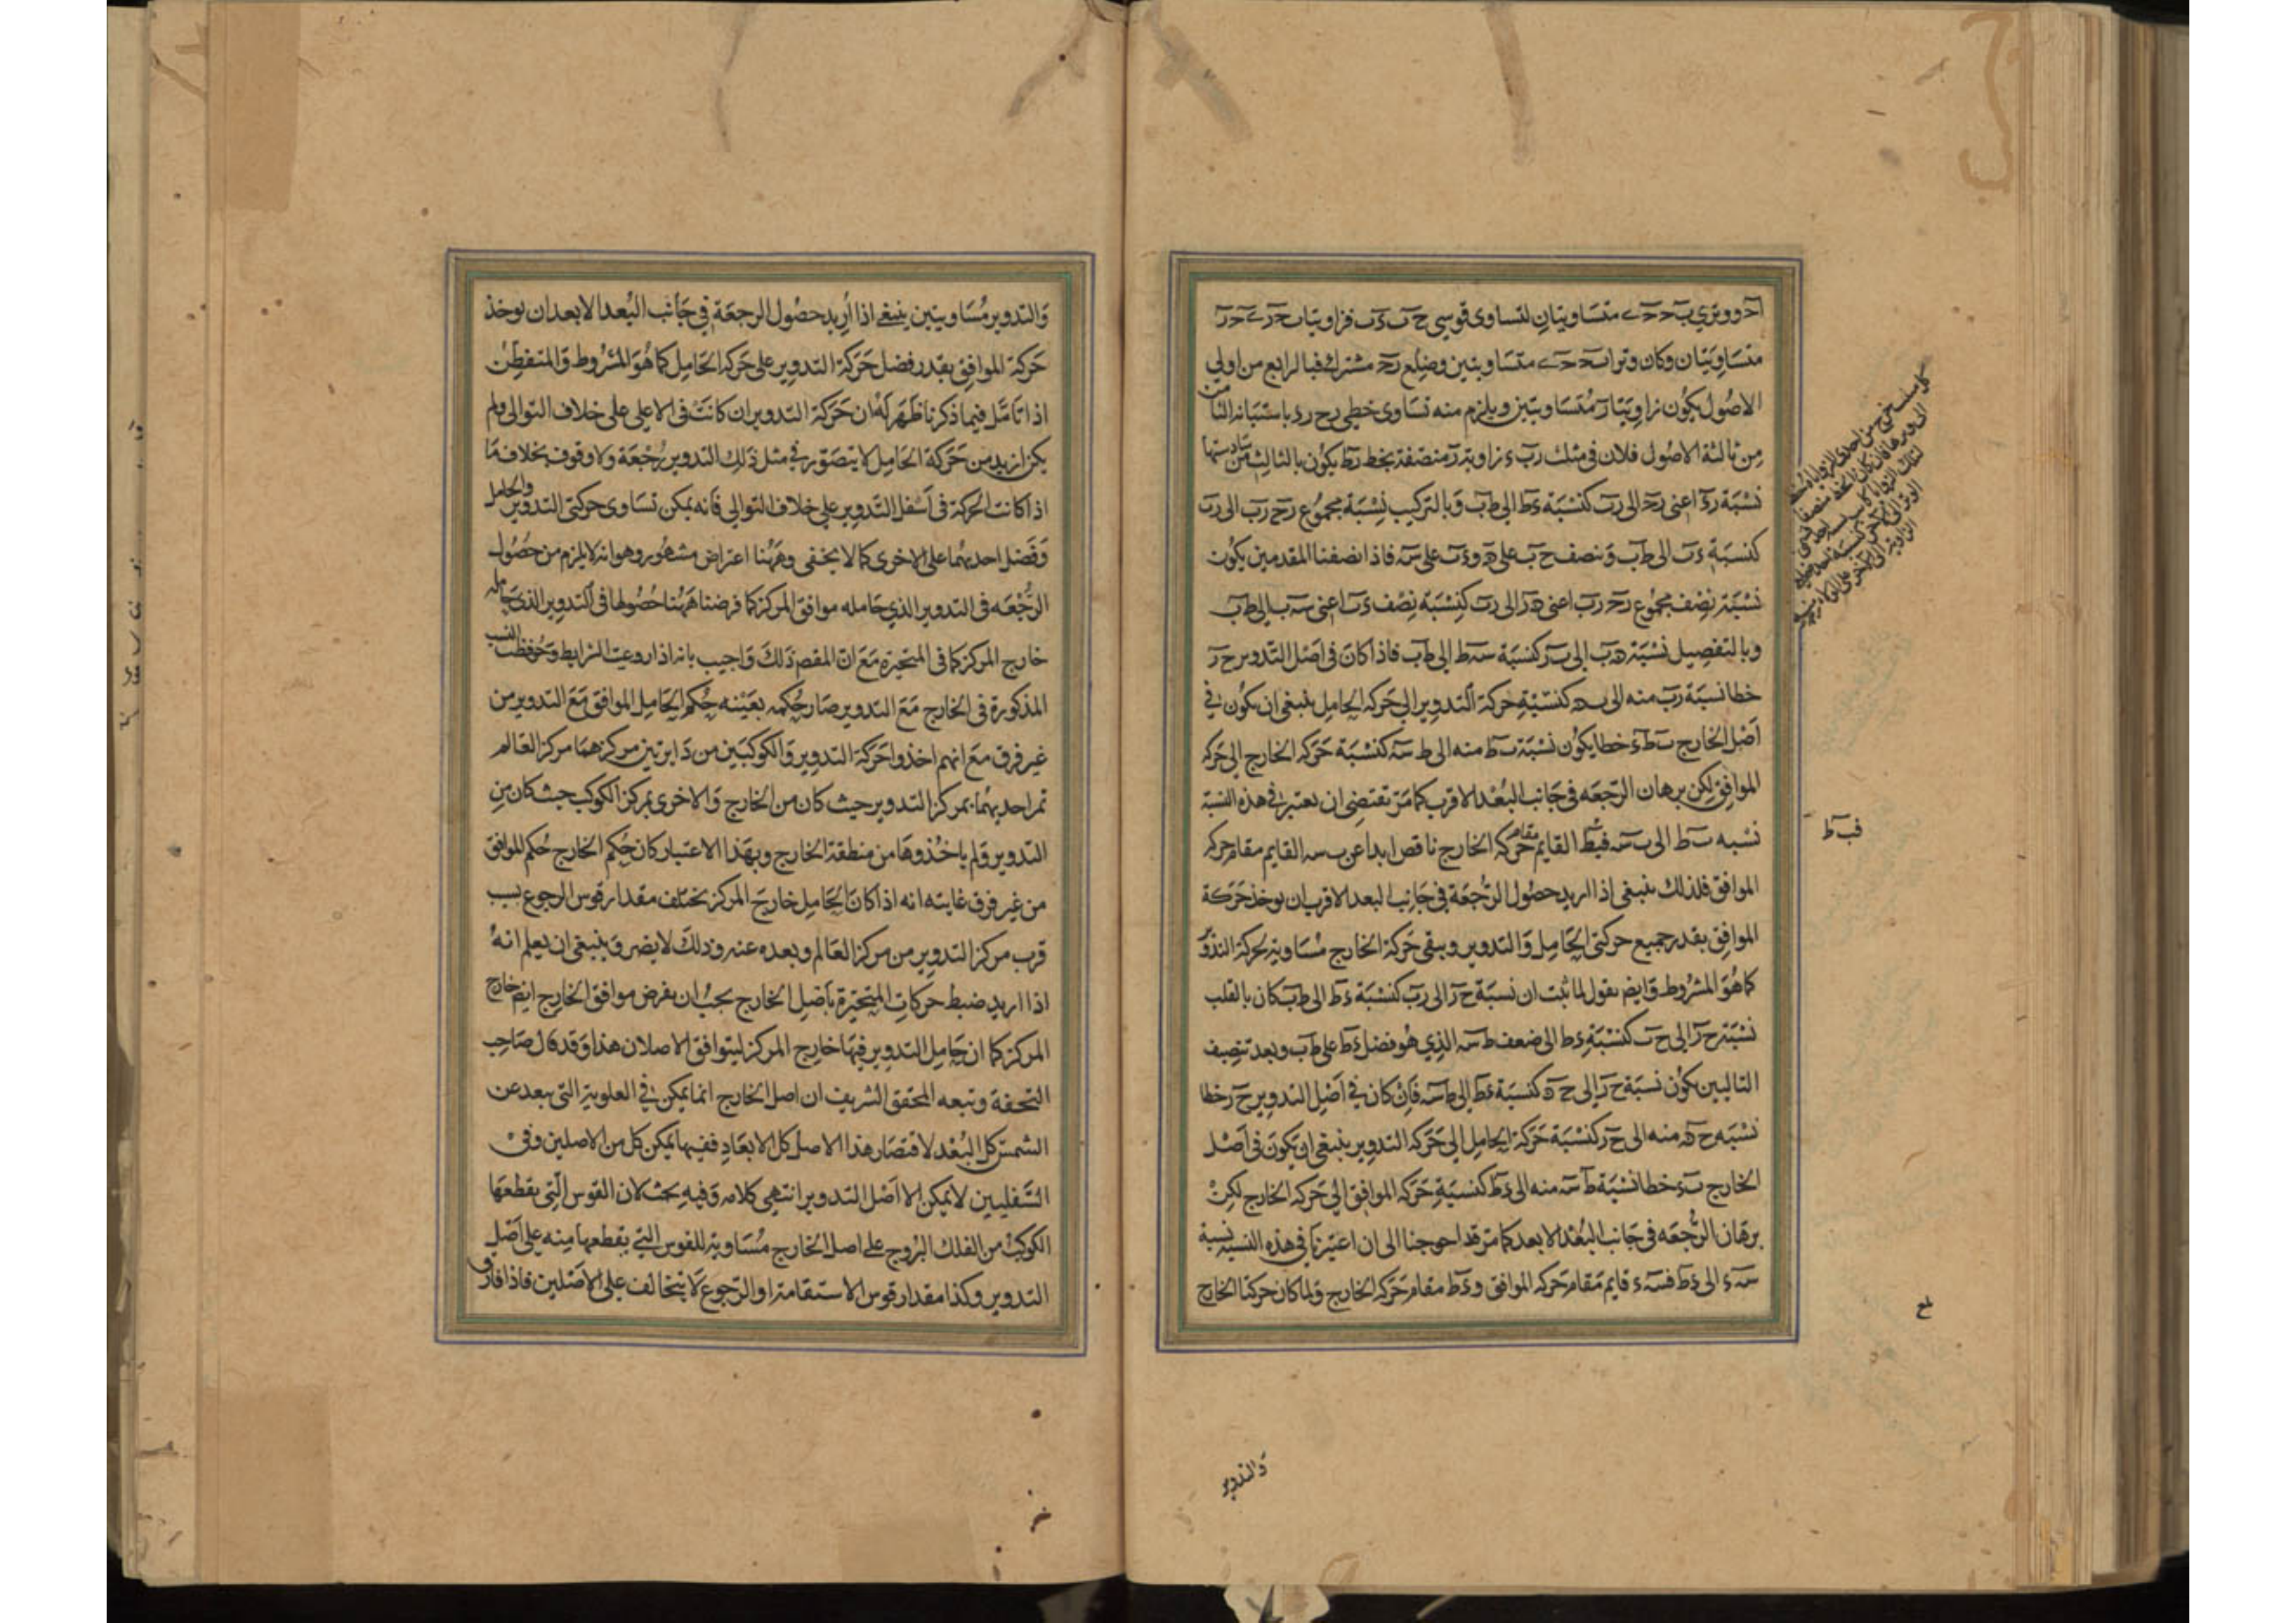 متساويتان وكان وترا ب ح ح ء متساويتين وضلع ر ح مشترك فبالرابع من اولى
الاصول يكون زاويتا ر متساويتين ويلزم منه تساوى خطى
من ثالثة الاصول فلان فى مثلث ر ب ء زاوية ر منصفة بخط ر ط يكون بالثالث من سادستها
نسبة ر ء اعنى ر ح الى ر ب كنسبة ء ط الى ط ب وبالتركيب نسبة مجموع ر ح ر ب الى ر ب
كنسبة ء ب الى ط ب وننصف ح ب على ه و ء ب على سه فاذا نصفنا المقدمين يكون
نسبة نصف مجموع ر ح ر ب اعنى ه ر الى ر ب كنسبة نصف ء ب اعنى سه ب الى ط ب
وبالتفصيل نسبة ه ب الى ب ر كنسبة سه ط الى ط ب فاذا كان فى اصل التدوير ح ر
خطا نسبة ر ب منه الى ب ه كنسبة حركة التدوير الى حركة الحامل ينبغى ان يكون فى
اصل الخارج ب ط ء خطا يكون نسبة ب ط منه الى ط سه كنسبة حركة الخارج الى حركة
الموافق لكن برهان الرجعة فى جانب البعد الاقرب كما مر تقتضى ان نعتبر فى هذه النسبة
نسبه ب ط الى ب سه فب ط القايم مقام حركة الخارج ناقص ابدا عن ب سه القايم مقام حركة
الموافق فلذلك ينبغى اذا اريد حصول الرجعة فى جانب البعد الاقرب ان يوخذ حركة
الموافق بقدر جميع حركتى الحامل والتدوير ويبقى حركة الخارج مساوية لحركة التدوير
كما هو المشروط وايضم نقول لما ثبت ان نسبة ح ر الى ر ب كنسبة ء ط الى ط ب كان بالقلب
نسبة ح ر الى ح ب كنسبة ء ط الى ضعف ط سه الذى هو فضل ء ط على ط ب وبعد تنصيف
التاليين يكون نسبة ح ر الى ح ه كنسبة ء ط الى ط سه فان كان فى اصل التدوير ح ر خطا
نسبه ح ه منه الى ح ر كنسبة حركة الحامل الى حركة التدوير ينبغى ان يكون فى اصل
الخارج ب ء خطا نسبة ط سه منه الى ء ط كنسبة حركة الموافق الى حركة الخارج لكن
برهان الرجعه فى جانب البعد الابعد كما مر قد احوجنا الى ان اعتبرنا فى هذه النسبه نسبة
سه ء الى ء ط فسه ء قايم مقام حركة الموافق و ء ط مقام حركة الخارج ولما كان حركتا الخارج
فب ط
والتدوير
والتدوير مساويتين ينبغى اذا أريد حصول الرجعة فى جانب البعد الابعد ان يوخذ
حركة الموافق بقدر فضل حركة التدوير على حركة الحامل كما هو المشروط والمتفطن
اذا تامل فيما ذكرنا ظهر له ان حركة التدوير ان كانت فى الاعلى على خلاف التوالى ولم
يكن ازيد من حركة الحامل لا يتصور فى مثل ذلك التدوير رجعة ولا وقوف بخلاف ما
اذا كانت الحركة فى اسفل التدوير على خلاف التوالى فانه يمكن تساوى حركتى التدوير والحامل
وفضل احديهما على الاخرى كما لا يخفى وههنا اعتراض مشهور وهو انه لا يلزم من حصول
الرجعه فى التدوير الذى حامله موافق المركز كما فرضنا ههنا حصولها فى التدوير الذى حامله
خارج المركز كما فى المتحيرة مع ان المقصم ذلك واجيب بانه اذا روعيت الشرايط وحوفظت النسب
المذكورة فى الخارج مع التدوير صار حكمه بعينه حكم الحامل الموافق مع التدوير من
غير فرق مع انهم اخذوا حركة التدوير والكوكبين من دايرتين مركزهما مركز العالم
تمر احديهما بمركز التدوير حيث كان من الخارج والاخرى بمركز الكوكب حيث كان من
التدوير ولم ياخذوها من منطقة الخارج وبهذا الاعتبار كان حكم الخارج حكم الموافق
من غير فرق غايته انه اذا كان الحامل خارج المركز يختلف مقدار قوس الرجوع بسب
قرب مركز التدوير من مركز العالم وبعده عنه وذلك لا يضر وينبغى ان يعلم انه
اذا اريد ضبط حركات المتحيرة باصل الخارج يجب ان يفرض موافق الخارج ايضم خارج
المركز كما ان حامل التدوير فيها خارج المركز ليتوافق الاصلان هذا وقد قال صاحب
التحفة وتبعه المحقق الشريف ان اصل الخارج انما يمكن فى العلوية التى يبعد عن
الشمس كل البعد لاقتصار هذا الاصل كل الابعاد ففيها يمكن كل من الاصلين وفى
السفليين لا يمكن الا اصل التدوير انتهى كلامه وفيه بحث لان القوس التى يقطعها
الكوكب من الفلك البروج على اصل الخارج مساوية للقوس التى يقطعها منه على اصل
التدوير وكذا مقدار قوس الاستقامة او الرجوع لا يتخالف على الاصلين فاذا فارق